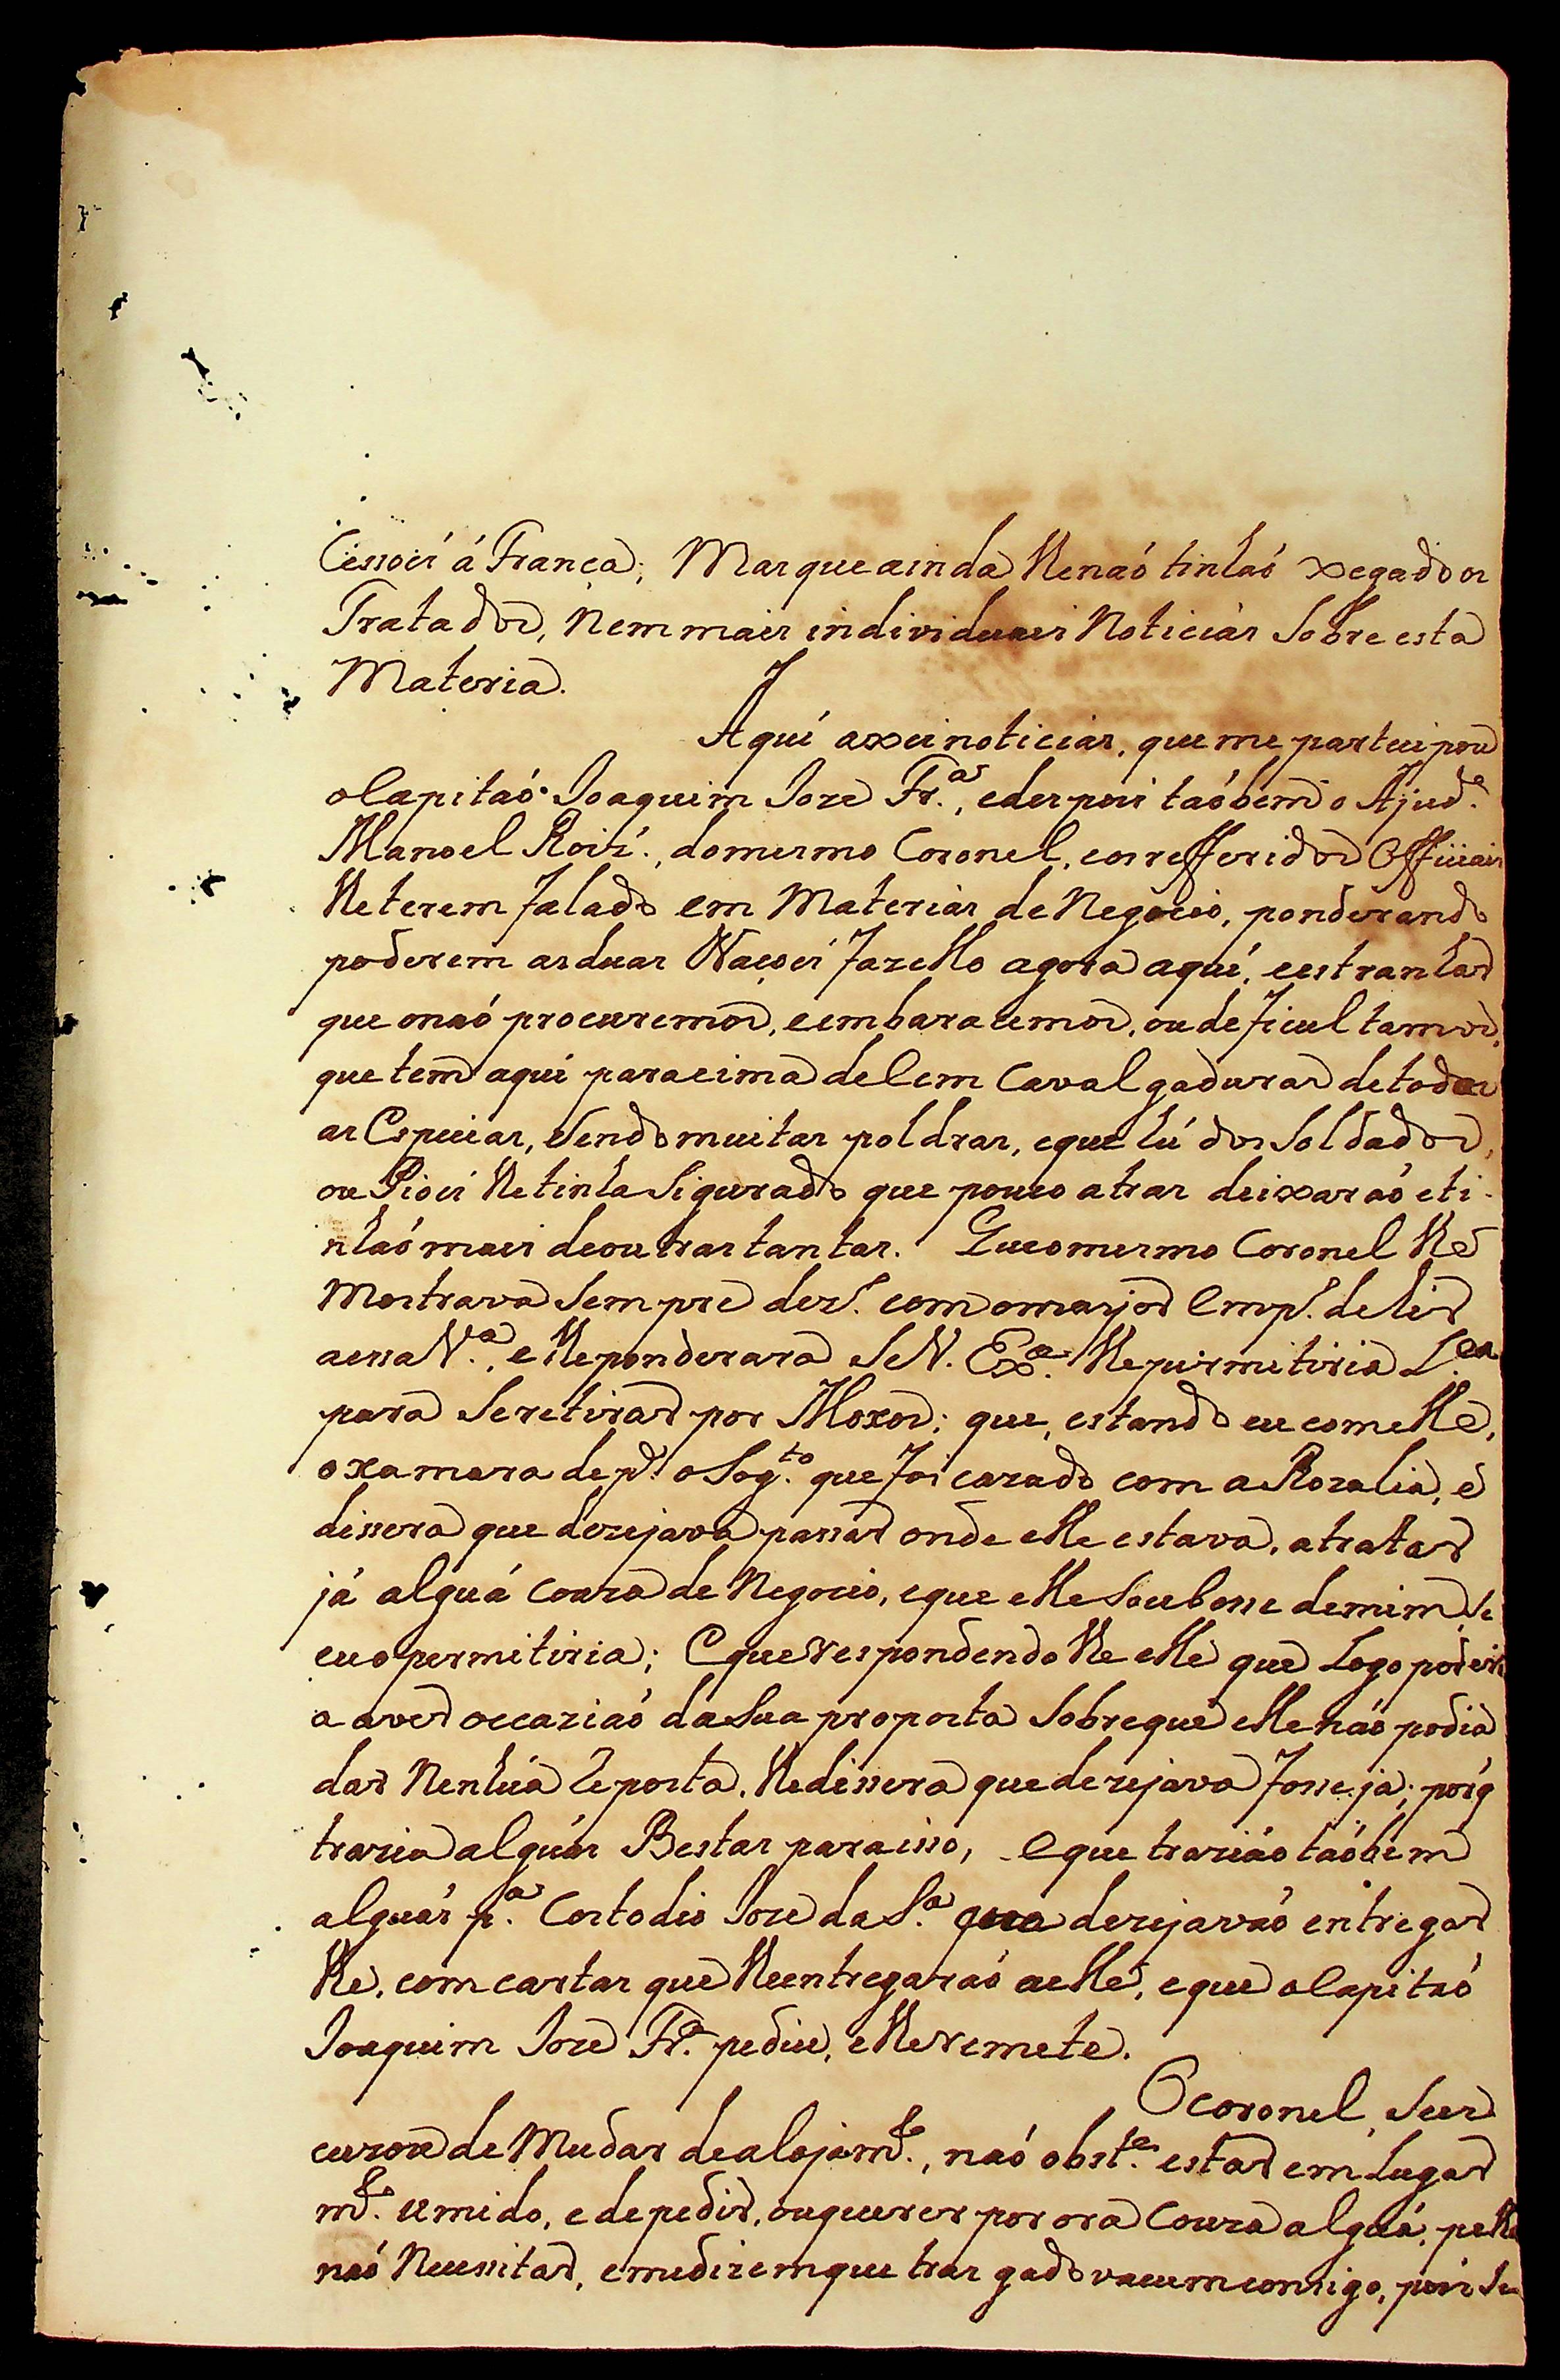 Cessoés á França; Mas que ainda lhe naó tinhaó xegado os
Tratados, nem mais individuaes Noticias Sobre esta
Materia.
Aquí axei noticias, que me participou
o Capitaó Joaquim Joze Fr.ᵃ, e depois taóbem o Ajud.ᵉ
Manoel Roiz., do mesmo Coronel, e os refferidos Officiais
lhe terem falado em Materias de Negocio, ponderando
poderem as duas Naçoés fazello agora aquí, e estranhar
que o naó procuremos, e embaracemos, ou deficultamos,
que tem aquí para cima de Cem Cavalgaduras de todas
as Especias, sendo muitas poldras, e que hú dos Soldados,
ou Pioés lhe tinha Sigurado que pouco atras deixaraó e ti-
nhaó mais de outras tantas. Que o mesmo Coronel lhe
Mostrava Sempre dez.ᵒ com o maijor Emp.ᵒ de hir
a essa V.ᵃ, e lhe ponderara Se V. Exᵃ. lhe pirmitiria L.ᶜᵃ
para Se retirar por Moxos; que, estando eu com elle,
o xamara de p.ᵉ o Sog.ᵗᵒ que foi cazado com a Rozalia, e
dissera que dezejava passar onde elle estava, a tratar
já alguá Couza de Negocio, e que elle Soubesse de mim, se
eu o permitiria; E que respondendo lhe elle que Logo poderi
a aver occaziaó da Sua proposta Sobre que elle náo podia
dar Nenhúa Reposta, lhe dissera que dezejava fosse já; porq
trazia algúas Bestas para isso, e que traziáo taóbem
alguás p.ᵃ Costodio Joze da S.ᵃ que dezejavaó entregar
lhe, com cartas que lhe entregaraó a elle, e que o Capitaó
Joaquim Joze Fr.ᵃ pediu, e lhe remete.
O coronel, Se es
cuzou de Mudar de alojam.ᵗᵒ, naó obst.ᵉ estar em Lugar
m.ᵗᵒ umido, e de pedir, ou querer por ora Couza alguá, p.ᵉ lhe
naó Necessitar, e me dizem que tras gado vacum comsigo, pois Se